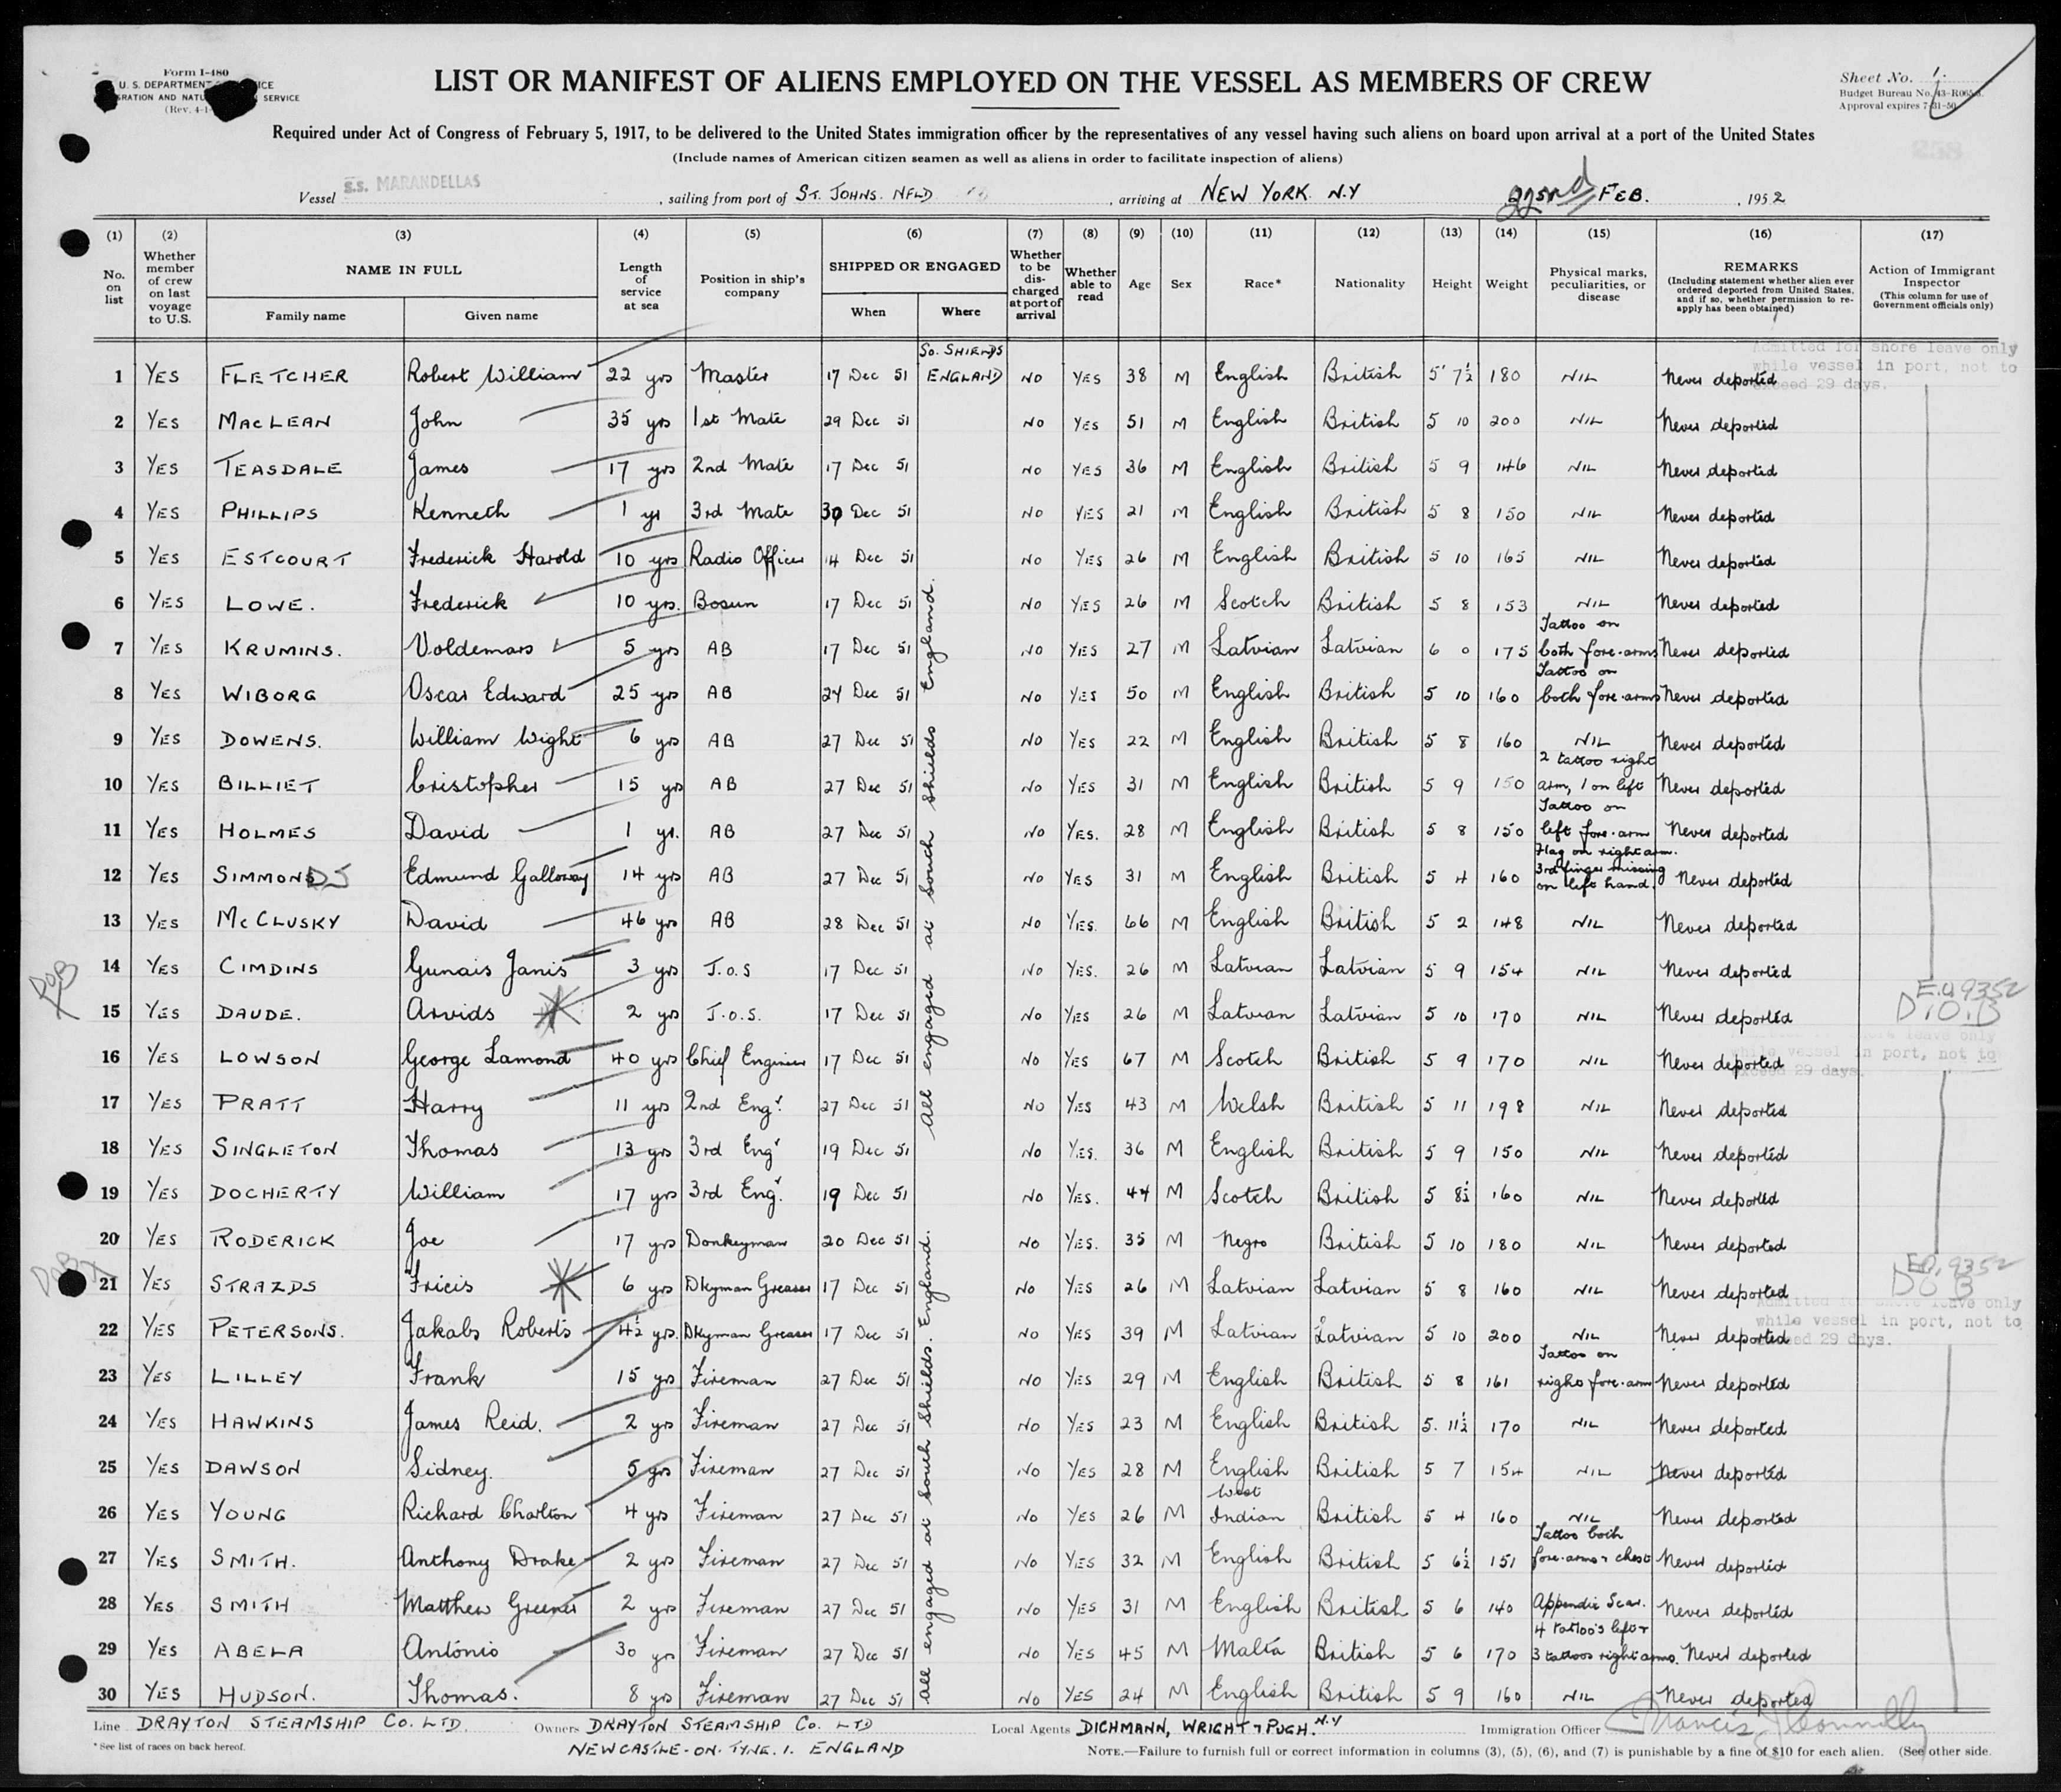 Form I-480
U. S. DEPARTMENT ICE
GRATION AND NATU SERVICE
(Rev. 4-1
LIST OR MANIFEST OF ALIENS EMPLOYED ON THE VESSEL AS MEMBERS OF CREW
Sheet No. 1.
Budget Bureau No. 43-R065
Approval expires 7-31-50
Required under Act of Congress of February 5, 1917, to be delivered to the United States immigration officer by the representatives of any vessel having such aliens on board upon arrival at a port of the United States
(Include names of American citizen seamen as well as aliens in order to facilitate inspection of aliens)
258
Vessel S.S. MARANDELLAS, sailing from port of ST. JOHNS. NFLD, arriving at NEW YORK N.Y 22nd FEB., 1952
(1) (2) (3) (4) (5) (6) (7) (8) (9) (10) (11) (12) (13) (14) (15) (16) (17)
No. on list
Whether member of crew on last voyage to U.S.
NAME IN FULL
Family name Given name
Length of service at sea
Position in ship's company
SHIPPED OR ENGAGED
When Where
Whether to be discharged at port of arrival
Whether able to read
Age Sex Race* Nationality Height Weight
Physical marks, peculiarities, or disease
REMARKS
(Including statement whether alien ever ordered deported from United States, and if so, whether permission to re-apply has been obtained)
Action of Immigrant Inspector
(This column for use of Government officials only)
Admitted for shore leave only
while vessel in port, not to
exceed 29 days.
1 YES FLETCHER Robert William 22 yrs Master 17 Dec 51 So. SHIELDS ENGLAND NO YES 38 M English British 5' 7½ 180 NIL Never deported
2 YES MACLEAN John 35 yrs 1st Mate 29 Dec 51 NO YES 51 M English British 5 10 200 NIL Never deported
3 YES TEASDALE James 17 yrs 2nd Mate 17 Dec 51 NO YES 36 M English British 5 9 146 NIL Never deported
4 YES PHILLIPS Kenneth 1 yr 3rd Mate 30 Dec 51 NO YES 21 M English British 5 8 150 NIL Never deported
5 YES ESTCOURT Frederick Harold 10 yrs Radio Officer 14 Dec 51 NO YES 26 M English British 5 10 165 NIL Never deported
6 YES LOWE. Frederick 10 yrs. Bosun 17 Dec 51 NO YES 26 M Scotch British 5 8 153 NIL Never deported
7 YES KRUMINS. Voldemars 5 yrs AB 17 Dec 51 NO YES 27 M Latvian Latvian 6 0 175 Tattoo on both fore-arms Never deported
8 YES WIBORG Oscar Edward 25 yrs AB 24 Dec 51 NO YES 50 M English British 5 10 160 Tattoo on both fore-arms Never deported
9 YES DOWENS. William Wight 6 yrs AB 27 Dec 51 NO YES 22 M English British 5 8 160 NIL Never deported
10 YES BILLIET Cristopher 15 yrs AB 27 Dec 51 NO YES 31 M English British 5 9 150 2 tattoo right arm, 1 on left Never deported
11 YES HOLMES David 1 yr. AB 27 Dec 51 NO YES. 28 M English British 5 8 150 Tattoo on left fore-arm Never deported
12 YES SIMMONDS Edmund Galloway 14 yrs AB 27 Dec 51 NO YES 31 M English British 5 4 160 Flag on right arm. 3rd finger missing on left hand Never deported
13 YES McCLUSKY David 46 yrs AB 28 Dec 51 NO YES. 66 M English British 5 2 148 NIL Never deported
14 YES CIMDINS Gunais Janis 3 yrs J.O.S 17 Dec 51 NO YES. 26 M Latvian Latvian 5 9 154 NIL Never deported
DOB X
15 YES DAUDE. Arvids 2 yrs J.O.S. 17 Dec 51 NO YES 26 M Latvian Latvian 5 10 170 NIL Never deported E.O. 9352 D.O.B
16 YES LOWSON George Lamond 40 yrs Chief Engineer 17 Dec 51 NO YES 67 M Scotch British 5 9 170 NIL Never deported
leave only
while vessel in port, not to
exceed 29 days.
17 YES PRATT Harry 11 yrs 2nd Engr. 27 Dec 51 NO YES 43 M Welsh British 5 11 198 NIL Never deported
18 YES SINGLETON Thomas 13 yrs 3rd Engr 19 Dec 51 NO YES. 36 M English British 5 9 150 NIL Never deported
19 YES DOCHERTY William 17 yrs 3rd Engr. 19 Dec 51 NO YES. 44 M Scotch British 5 8½ 160 NIL Never deported
20 YES RODERICK Joe 17 yrs Donkeyman 20 Dec 51 NO YES. 35 M Negro British 5 10 180 NIL Never deported
DOB X
21 YES STRAZDS Fricis 6 yrs Dkyman Greaser 17 Dec 51 NO YES 26 M Latvian Latvian 5 8 160 NIL Never deported E.O. 9352 DOB
22 YES PETERSONS. Jakabs Roberts 4½ yrs. Dkyman Greaser 17 Dec 51 NO YES 39 M Latvian Latvian 5 10 200 NIL Never deported
Admitted for shore leave only
while vessel in port, not to
exceed 29 days.
23 YES LILLEY Frank 15 yrs Fireman 27 Dec 51 NO YES 29 M English British 5 8 161 Tattoo on right fore-arm Never deported
24 YES HAWKINS James Reid. 2 yrs Fireman 27 Dec 51 NO YES 23 M English British 5. 11½ 170 NIL Never deported
25 YES DAWSON Sidney. 5 yrs Fireman 27 Dec 51 NO YES 28 M English British 5 7 154 NIL Never deported
26 YES YOUNG Richard Charlton 4 yrs Fireman 27 Dec 51 NO YES 26 M West Indian British 5 4 160 NIL Never deported
27 YES SMITH. Anthony Drake 2 yrs Fireman 27 Dec 51 NO YES 32 M English British 5 6½ 151 Tattoo both fore-arms & chest Never deported
28 YES SMITH Matthew Greener 2 yrs Fireman 27 Dec 51 NO YES 31 M English British 5 6 140 Appendix Scar. Never deported
29 YES ABELA Antonio 30 yrs Fireman 27 Dec 51 NO YES 45 M Malta British 5 6 170 4 tattoo's left & 3 tattoos right arms. Never deported
30 YES HUDSON. Thomas. 8 yrs Fireman 27 Dec 51 NO YES 24 M English British 5 9 160 NIL Never deported
All engaged at South Shields England.
All engaged at South Shields. England.
Line DRAYTON STEAMSHIP Co. LTD. Owners DRAYTON STEAMSHIP Co. LTD Local Agents DICHMANN, WRIGHT & PUGH. N.Y Immigration Officer Francis J Connolly
*See list of races on back hereof. NEWCASTLE-ON-TYNE. 1. ENGLAND NOTE.—Failure to furnish full or correct information in columns (3), (5), (6), and (7) is punishable by a fine of $10 for each alien. (See other side.